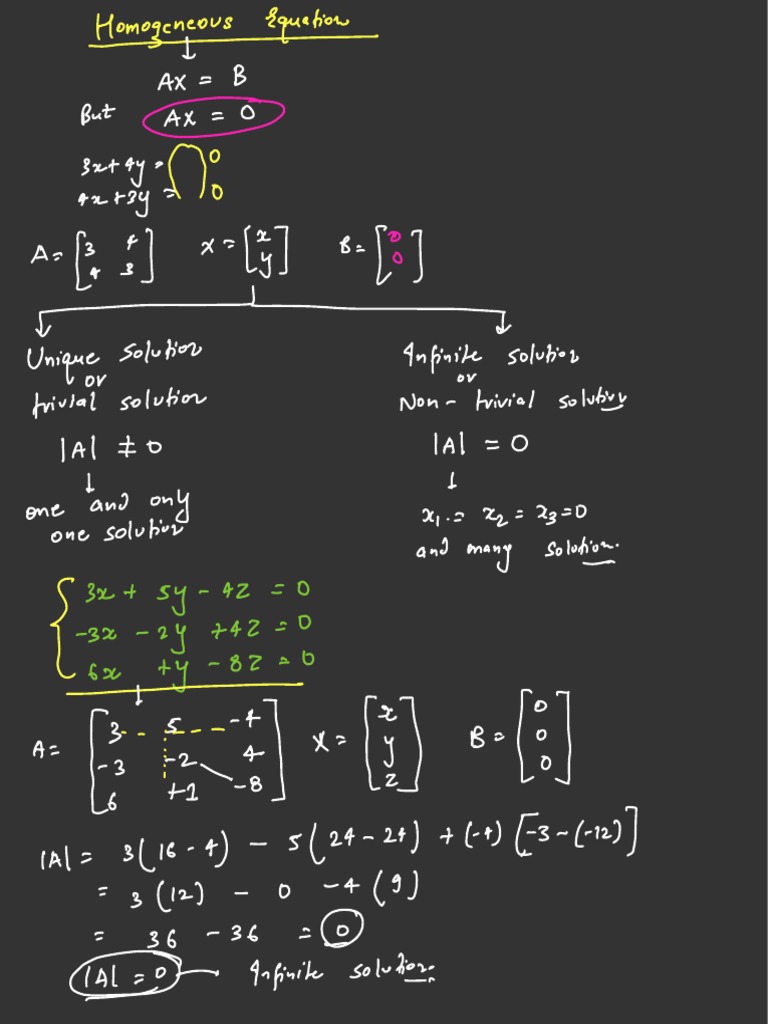 Homogeneous Equation
AX = B
But AX = 0
3x + 4y = 0
4x + 3y = 0
A = [3 4 4 3] X = [x y] B = [0 0]
Unique solution
or
trivial solution
|A| ≠ 0
↓
one and only
one solution
Infinite solution
or
Non - trivial solution
|A| = 0
↓
x₁ = x₂ = x₃ = 0
and many solution.
3x + 5y - 4z = 0
-3x - 2y + 4z = 0
6x + y - 8z = 0
A = [3 5 -4 -3 -2 4 6 +1 -8] X = [x y z] B = [0 0 0]
|A| = 3(16 - 4) - 5(24 - 24) + (-4) [-3 - (-12)]
= 3(12) - 0 - 4(9)
= 36 - 36 = 0
|A| = 0 - Infinite solution.